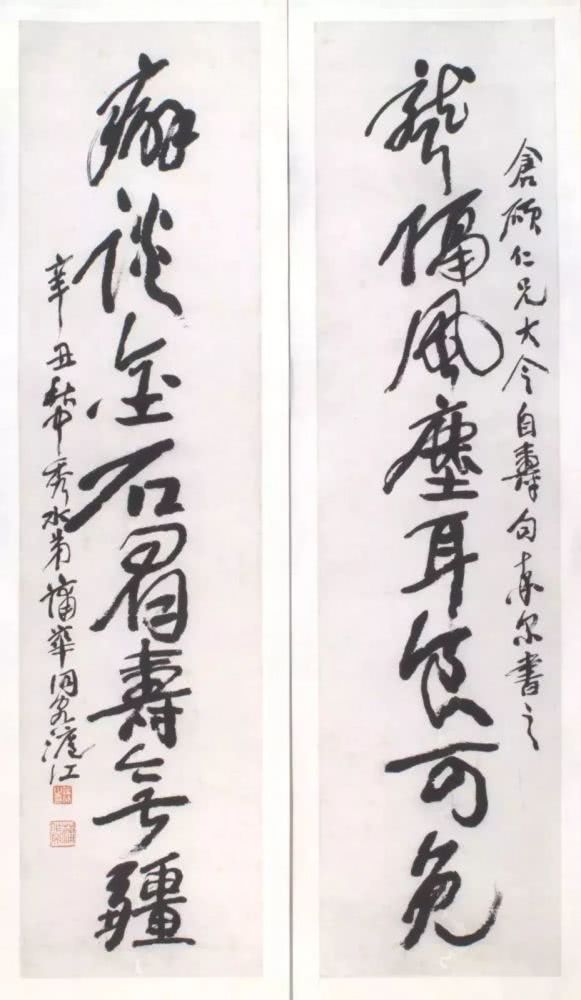 聾隔風塵耳食可免
倉碩仁兄大令自壽句率尔書之
癖談金石眉壽無疆
辛丑秋中秀水弟蒲華同客滬江